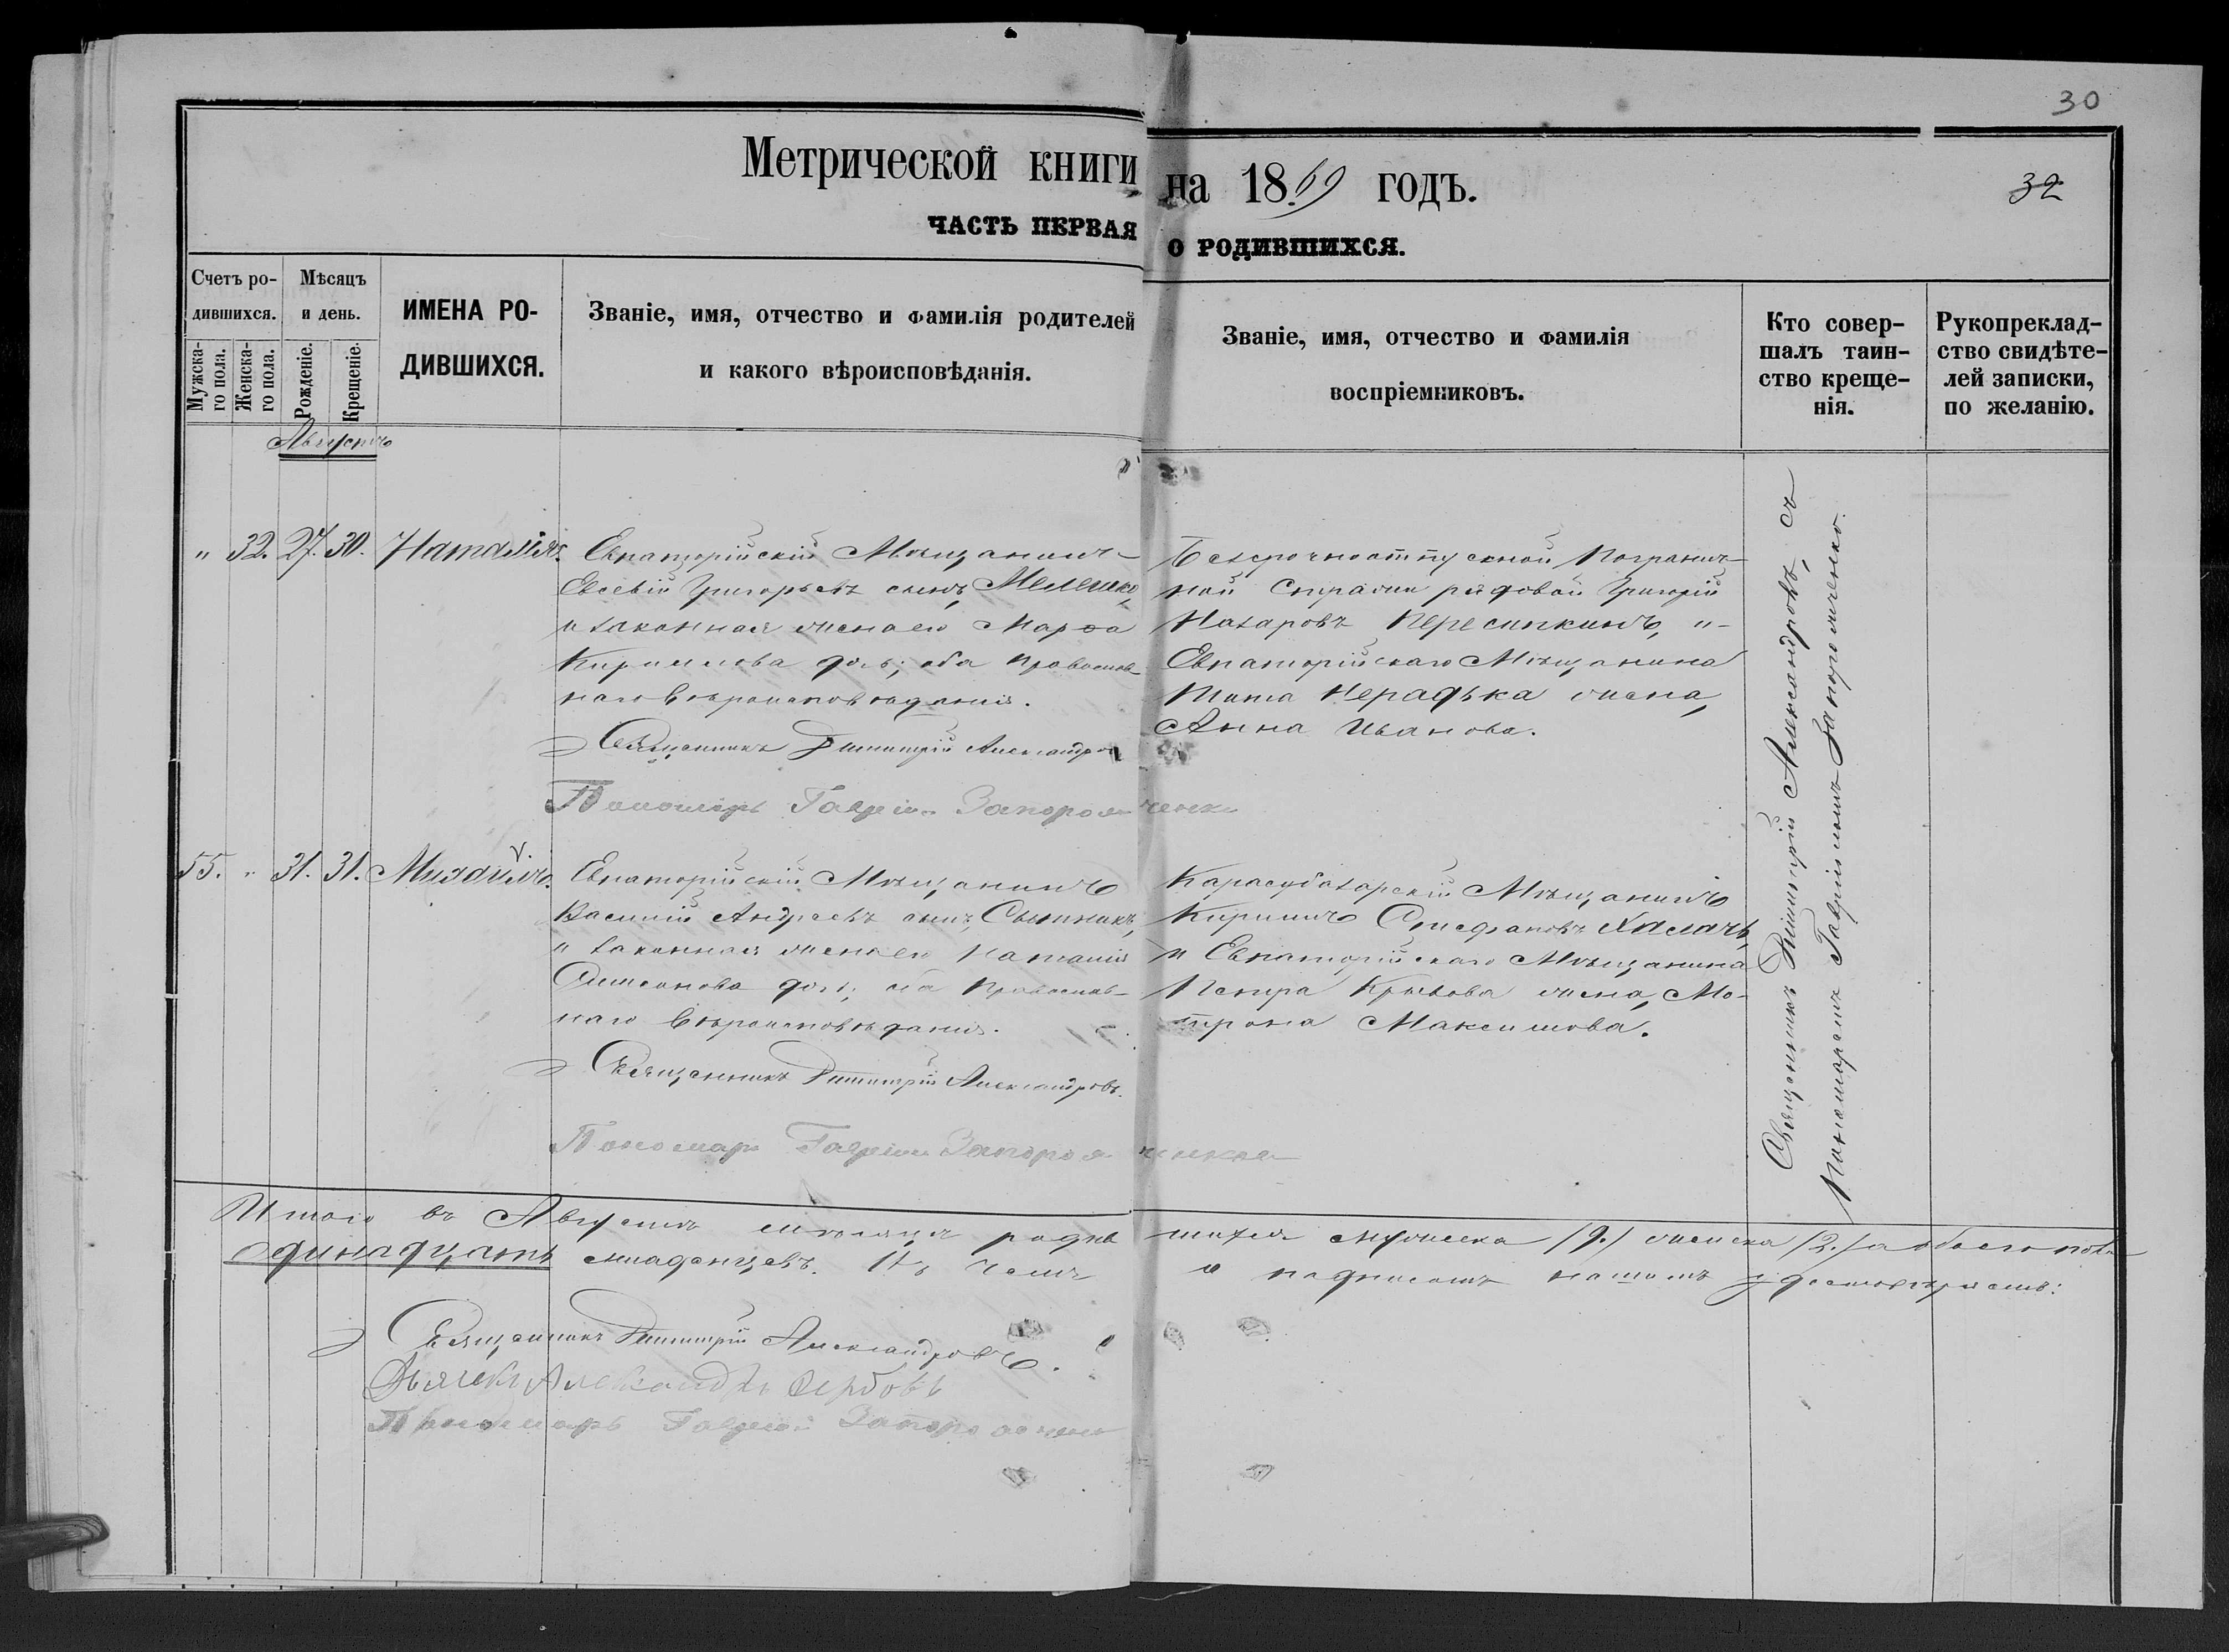 30
Метрической книги на 1869 годъ.
32
ЧАСТЬ ПЕРВАЯ О РОДИВШИХСЯ.
Счетъ ро-
дившихся.
Мужска-
го пола.
Женска-
го пола.
Мѣсяцъ
и день.
Рожденіе.
Крещеніе.
ИМЕНА РО-
ДИВШИХСЯ.
Званіе, имя, отчество и фамилія родителей
и какого вѣроисповѣданія.
Званіе, имя, отчество и фамилія
воспріемниковъ.
Кто совер-
шалъ таин-
ство креще-
нія.
Рукопреклад-
ство свидѣте-
лей записки,
по желанію.
Августъ
" 32. 27. 30. Наталія.
Евпаторійскій Мѣщанинъ
Евсевій Григорьевъ сынъ, Мелешко,
и законная жена его Марѳа
Кириллова дочь; оба православ-
наго вѣроисповѣданія.
Священникъ Димитрій Александровъ
Пономарь Гавріилъ Запорожченко
Безсрочноотпускной Погранич-
ной Стражи рядовой Григорій
Назаровъ Пересипкинъ, и
Евпаторійскаго Мѣщанина
Тита Нерадька жена,
Анна Иванова.
Священникъ Димитрій Александровъ, съ
Пономаремъ Гавріиломъ Запорожченко.
55. " 31. 31. Михаилъ.
Евпаторійскій Мѣщанинъ
Василій Андреевъ сынъ, Сытникъ,
и законная жена его Наталія
Симеонова дочь; оба Православ-
наго вѣроисповѣданія.
Священникъ Димитрій Александровъ.
Пономарь Гавріилъ Запорожченко
Карасубазарскій Мѣщанинъ
Кириллъ Стефановъ Халачъ,
и Евпаторійскаго Мѣщанина
Петра Крюкова жена, Мо-
трона Максимова.
Итого въ Августѣ мѣсяцѣ родившихся мужеска /9./ женска /2./ а обоего пола
одинадцать младенцевъ. Въ чемъ и подписомъ нашимъ удостовѣряемъ:
Священникъ Димитрій Александровъ.
Дьячекъ Александръ Сербовъ
Пономарь Гавріилъ Запорожченко